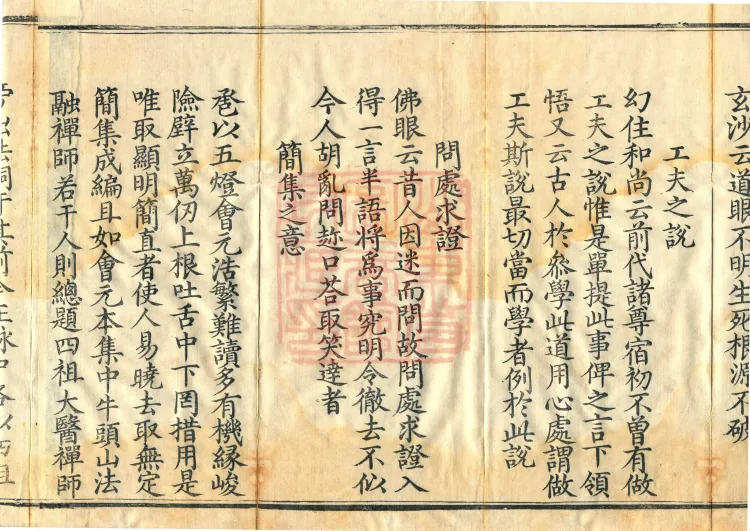 玄沙云道眼不明生死根源不破
工夫之說
幻住和尚云前代諸尊宿初不曾有做
工夫之說惟是單提此事俾之言下領
悟又云古人於叅學此道用心處謂做
工夫斯說最切當而學者例於此說
問處求證
佛眼云昔人因迷而問故問處求證入
得一言半語將爲事究明令徹去不似
今人胡亂問趂口荅取笑達者
簡集之意
𠃔以五燈會元浩繁難讀多有機緣峻
險壁立萬仞上根吐舌中下罔措用是
唯取顯明簡直者使人易曉去取無定
簡集成編且如會元本集中牛頭山法
融禪師若干人則總題四祖大醫禪師